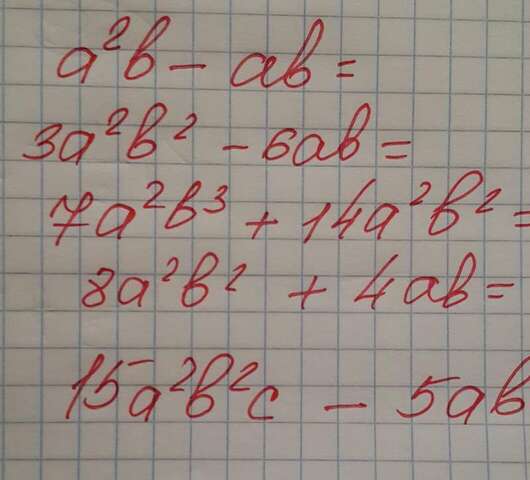 a²b - ab =
3a²b² - 6ab =
7a²b³ + 14a²b² =
8a²b² + 4ab =
15a²b²c - 5ab